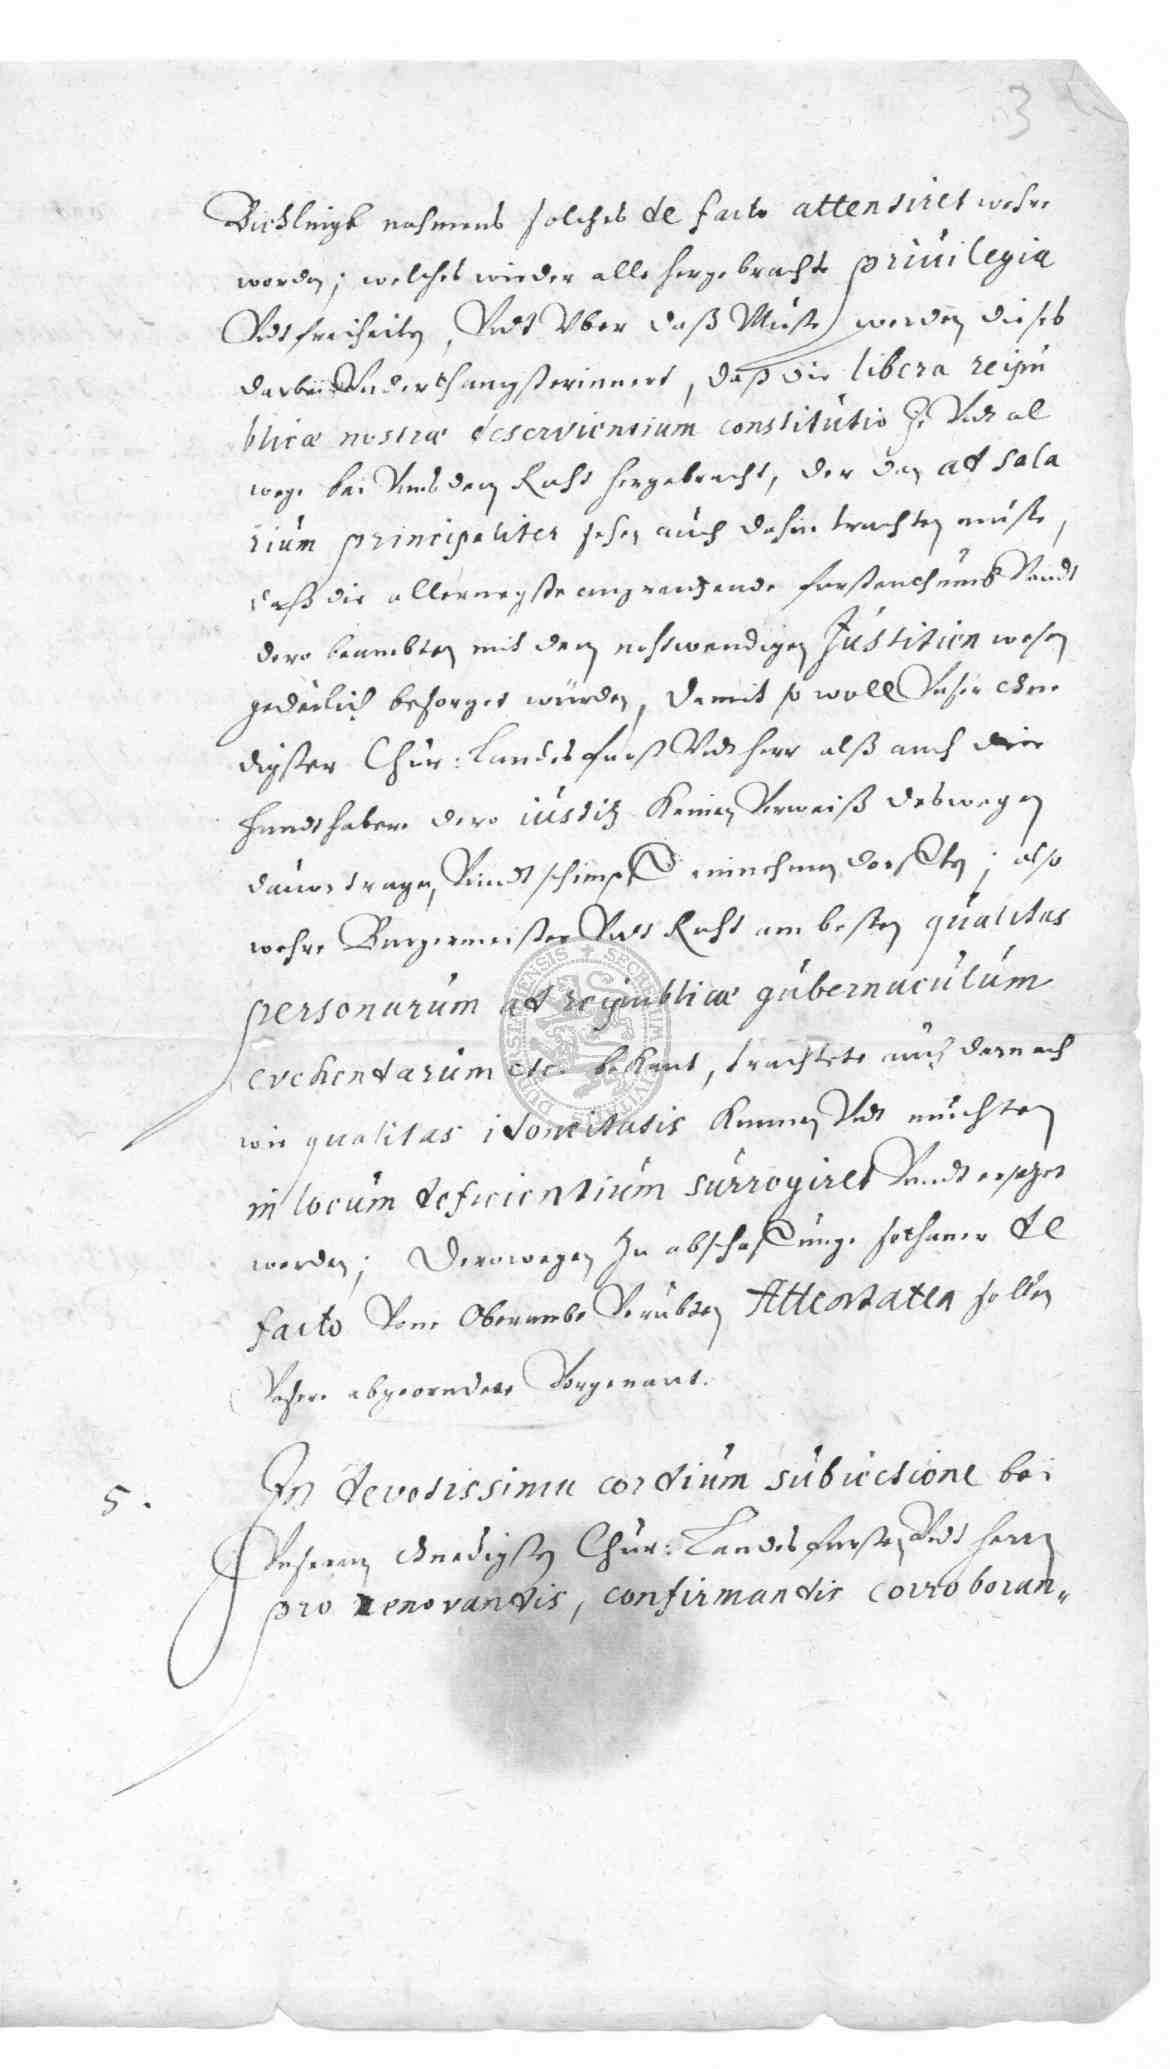 3
nahmens solches de facto attentiret wehre
worden; welches wieder alle hergebrachte privilegia
Vndt freiheiten, Vndt Vber daß Muste werden dieses
darbei Vnderthanigst erinnert, daß die libera reipu
blicæ nostræ deservientium constitutio Je Vndt al
wege bei Vnß dem Raht hergebracht, der den ad sala
rium principaliter sehen auch dahin trachten muste,
daß die allernegste angrentzende Vndt
dero beambten mit dem nohtwendigen Justitien wesen
gedeilich besorget würden, damit so woll Vnser Gne
digster Chur: Landes furst Vndt herr alß auch die
handthabere dero iustitz Keinen Verweiß deswegen
dauon tragen, Vndt schimpf einnehmen dorften; also
wehre Burgermeister Vndt Raht am besten qualitas
personarum ad reipublicæ gubernaculum
evehendarum etc. bekant, trachtete auch darnach
wie qualitas idoneitatis Kennen Vndt muchten
in locum deficientium surrogiret Vndt ersetzet
werden; Derowegen Zu abschaffunge sothaner de
facto Vom Oberambt Verubten Attentaten sollen
Vnsere abgeordnete Vorgenant.
5. In devotissima cordium subiectione bei
Vnserem Gnedigsten Chur: Landes fursten Vndt herrn
pro renovandis, confirmandis corroboran„
DUDERSTADENSIS SECRETUM CIVIT